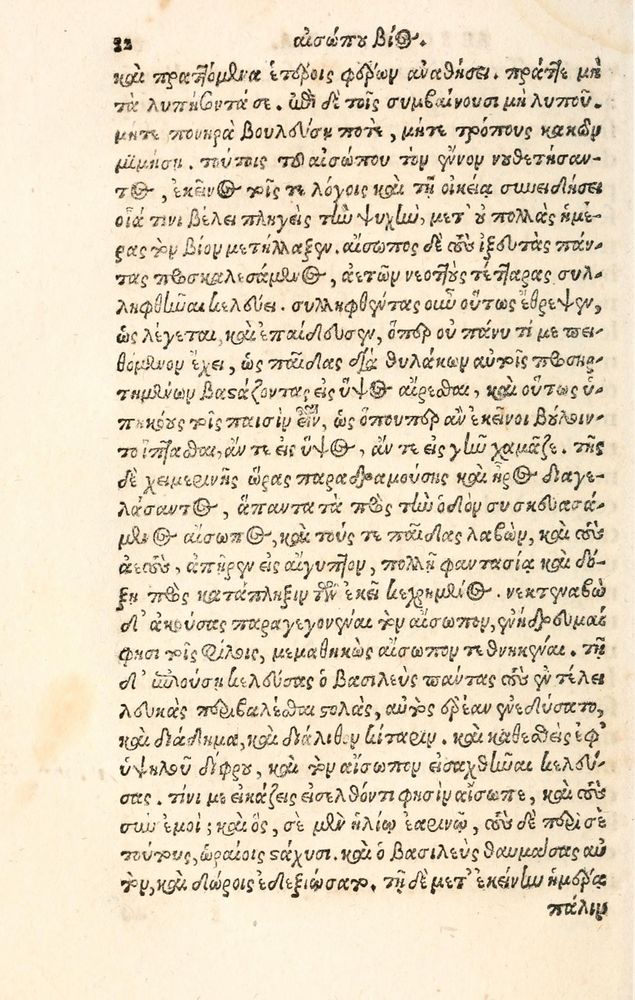 32 αἰσώπου βίος.
καὶ πραττόμενα ἑτέροις φέρων ἀναθήσει. πράττε μὴ
τὰ λυπήσοντά σε. ἐπὶ δὲ τοῖς συμβαίνουσι μὴ λυποῦ.
μήτε πονηρὰ βουλεύσῃ ποτὲ, μήτε τρόπους κακῶν
μιμήσῃ. τούτοις τοῦ αἰσώπου τὸν ἔννον νουθετήσαν-
τος, ἐκεῖνος τοῖς τε λόγοις καὶ τῇ οἰκείᾳ συνειδήσει
οἷά τινι βέλει πληγεὶς τὴν ψυχὴν, μετ' οὐ πολλὰς ἡμέ-
ρας τὸν βίον μετήλλαξεν. αἴσωπος δὲ τοὺς ἰξευτὰς πάν-
τας προσκαλεσάμενος, ἀετῶν νεοττοὺς τέτταρας συλ-
ληφθῆναι κελεύει. συλληφθέντας οὖν οὕτως ἔθρεψεν,
ὡς λέγεται, καὶ ἐπαίδευσεν, ὅπερ οὐ πάνυ τί με πει-
θόμενον ἔχει, ὡς παῖδας διὰ θυλάκων αὐτοῖς προσηρ-
τημένων βαστάζοντας εἰς ὕψος αἴρεσθαι, καὶ οὕτως ὑ-
πηκόους τοῖς παισὶν εἶναι, ὡς ὅπουπερ ἂν ἐκεῖνοι βούλοιν-
το ἵπτασθαι, ἄν τε εἰς ὕψος, ἄν τε εἰς γῆν χαμᾶζε. τῆς
δὲ χειμερινῆς ὥρας παραδραμούσης καὶ ἦρος διαγε-
λάσαντος, ἅπαντα τὰ πρὸς τὴν ὁδὸν συσκευασά-
μενος αἴσωπος, καὶ τούς τε παῖδας λαβὼν, καὶ τοὺς
ἀετοὺς, ἀπῆρεν εἰς αἴγυπτον, πολλῇ φαντασίᾳ καὶ δό-
ξῃ πρὸς κατάπληξιν τῶν ἐκεῖ κεχρημένος. νεκτεναβὼ
δ' ἀκούσας παραγεγονέναι τὸν αἴσωπον, ἐνήδρευμαι
φησὶ τοῖς φίλοις, μεμαθηκὼς αἴσωπον τεθνηκέναι. τῇ
δ' ἐπιούσῃ κελεύσας ὁ βασιλεὺς πάντας τοὺς ἐν τέλει
λευκὰς περιβαλέσθαι στολὰς, αὐτὸς κιρρὰν ἐνεδύσατο,
καὶ διάδημα, καὶ διάλιθον κίταριν. καὶ καθεσθεὶς ἐφ'
ὑψηλοῦ δίφρου, καὶ τὸν αἴσωπον εἰσαχθῆναι κελεύ-
σας. τίνι με εἰκάζεις εἰσελθόντι φησὶν αἴσωπε, καὶ τοὺς
σὺν ἐμοί; καὶ ὃς, σὲ μὲν ἡλίῳ ἐαρινῷ, τοὺς δὲ περὶ σὲ
τούτους, ὡραίοις στάχυσι. καὶ ὁ βασιλεὺς θαυμάσας αὐ
τὸν, καὶ δώροις ἐδεξιώσατο. τῇ δὲ μετ' ἐκείνην ἡμέρᾳ
πάλιν